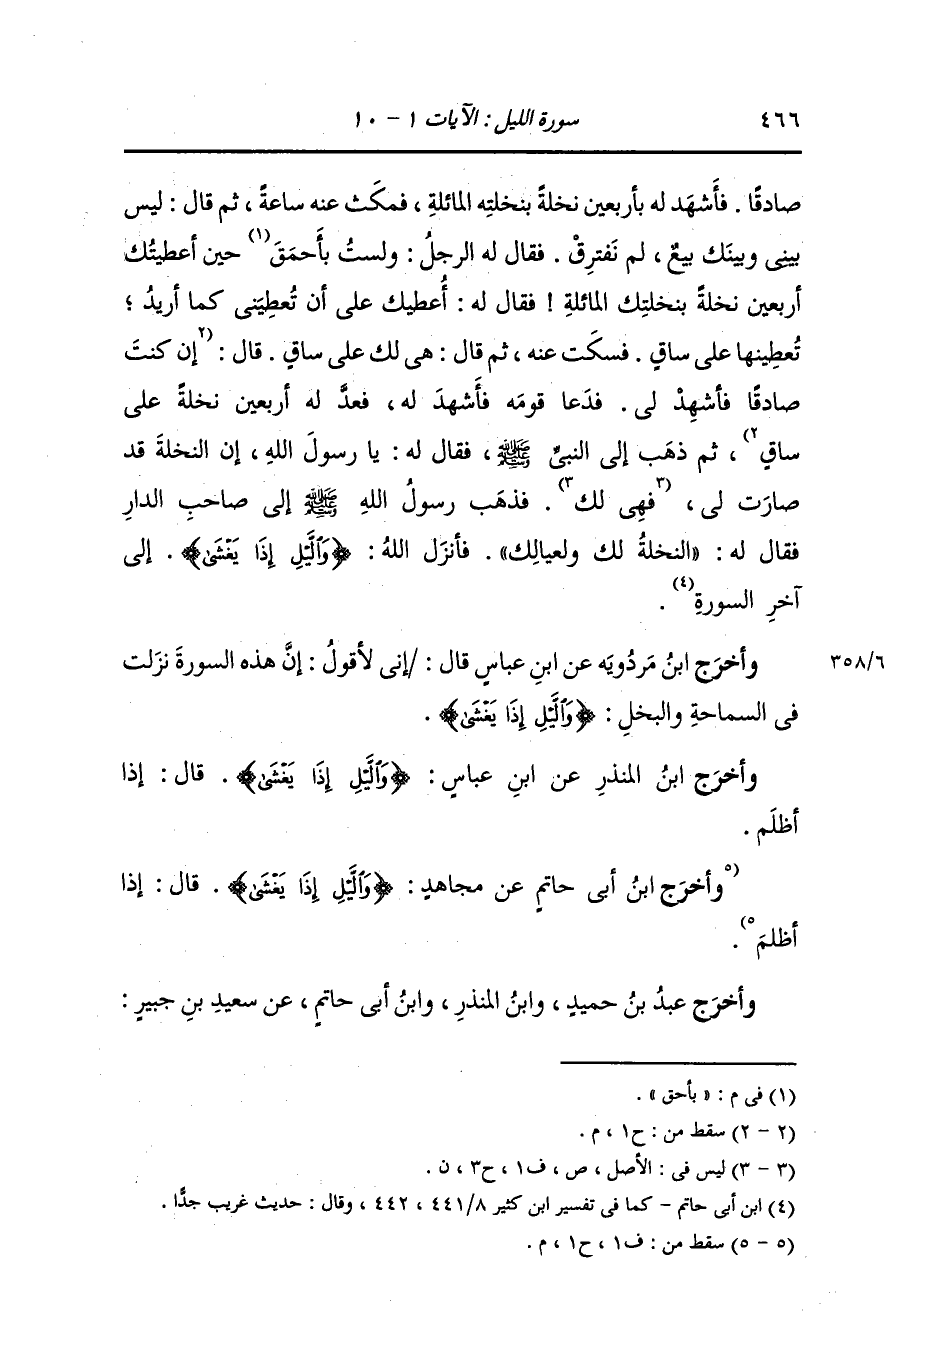 ٤٦٦ سورة الليل : الآيات ١ - ١٠
صادقًا . فأَشهَد له بأربعين نخلةً بنخلتِه المائلةِ ، فمكَث عنه ساعةً ، ثم قال : ليس
بينى وبينَك بيعٌ ، لم نَفترِقْ . فقال له الرجلُ : ولستُ بأَحمَقَ(١) حين أعطيتُك
أربعين نخلةً بنخلتِك المائلةِ ! فقال له : أُعطيك على أن تُعطِيَنى كما أريدُ ؛
تُعطِينها على ساقٍ . فسكَت عنه ، ثم قال : هى لك على ساقٍ . قال : (٢إن كنتَ
صادقًا فأشهِدْ لى . فدَعا قومَه فأَشهدَ له ، فعدَّ له أربعين نخلةً على
ساقٍ٢) ، ثم ذهَب إلى النبىِّ ﷺ ، فقال له : يا رسولَ اللهِ ، إن النخلةَ قد
صارَت لى ، (٣فهِى لك٣) . فذهَب رسولُ اللهِ ﷺ إلى صاحبِ الدارِ
فقال له : «النخلةُ لك ولعيالِك» . فأنزَل اللهُ : ﴿وَٱلَّيْلِ إِذَا يَغْشَىٰ﴾ . إلى
آخرِ السورةِ(٤) .
وأخرَج ابنُ مَردُويَه عن ابنِ عباسٍ قال : /إنى لأقولُ : إنَّ هذه السورةَ نزَلت ٣٥٨/٦
فى السماحةِ والبخلِ : ﴿وَٱلَّيْلِ إِذَا يَغْشَىٰ﴾ .
وأخرَج ابنُ المنذرِ عن ابنِ عباسٍ : ﴿وَٱلَّيْلِ إِذَا يَغْشَىٰ﴾ . قال : إذا
أظلَم .
(٥وأخرَج ابنُ أبى حاتمٍ عن مجاهدٍ : ﴿وَٱلَّيْلِ إِذَا يَغْشَىٰ﴾ . قال : إذا
أظلمَ٥) .
وأخرَج عبدُ بنُ حميدٍ ، وابنُ المنذرِ ، وابنُ أبى حاتمٍ ، عن سعيدِ بنِ جبيرٍ :
(١) فى م : « بأحق » .
(٢ - ٢) سقط من : ح١ ، م .
(٣ - ٣) ليس فى : الأصل ، ص ، ف١ ، ح٣ ، ن .
(٤) ابن أبى حاتم - كما فى تفسير ابن كثير ٤٤١/٨ ، ٤٤٢ ، وقال : حديث غريب جدًّا .
(٥ - ٥) سقط من : ف١ ، ح١ ، م .